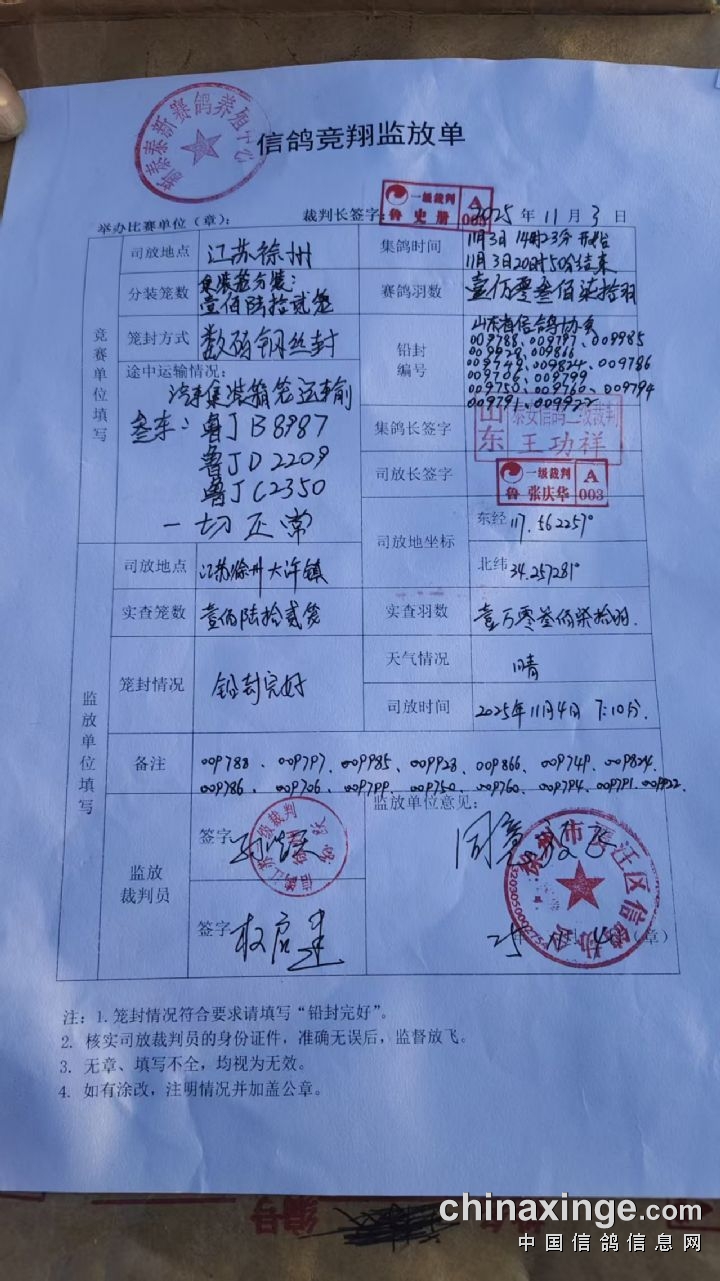 信鸽竞翔监放单
举办比赛单位（章）：
裁判长签字：
一级裁判
鲁 史册
A
003
2025年11月3日
竞赛单位填写
司放地点
江苏徐州
集鸽时间
11月3日14时23分开始
11月3日20时50分结束
分装笼数
集装笼分装：
壹佰陆拾贰笼
赛鸽羽数
壹万零叁佰柒拾羽
笼封方式
数码钢丝封
铅封编号
山东省信鸽协会
009788、009797、009985
009928、009866
009749、009824、009786
009706、009799
009750、009760、009794
009791、009922
途中运输情况：
汽车集装箱笼运输
叁车：鲁J B8987
鲁J D2209
鲁J C2350
一切正常
集鸽长签字
山东
泰安信鸽二级裁判
王功祥
司放长签字
一级裁判
鲁 张庆华
A
003
司放地坐标
东经 117.562257°
北纬 34.257281°
监放单位填写
司放地点
江苏徐州大许镇
实查笼数
壹佰陆拾贰笼
实查羽数
壹万零叁佰柒拾羽.
笼封情况
铅封完好
天气情况
晴
司放时间
2025年11月4日 7:10分.
备注
009788、009797、009985、009928、009866、009749、009824、
009786、009706、009799、009750、009760、009794、009791、009922.
监放裁判员
签字
签字
监放单位意见：
同意放飞
（章）
注：1. 笼封情况符合要求请填写“铅封完好”。
2. 核实司放裁判员的身份证件，准确无误后，监督放飞。
3. 无章、填写不全，均视为无效。
4. 如有涂改，注明情况并加盖公章。
编号
chinaxinge.com
中国信鸽信息网